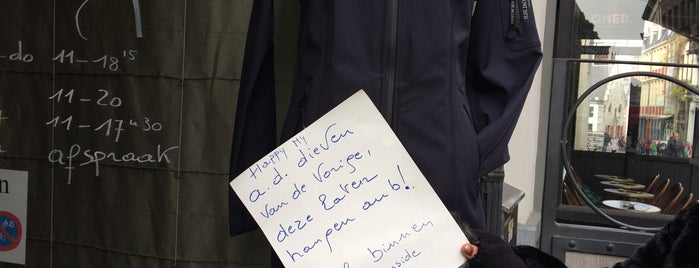 -do 11-18¹⁵
11-20
11-17ᵘ30
afspraak
HAPPY NY
a.d. dieven
van de vorige,
deze laten
hangen aub!
binnen
inside